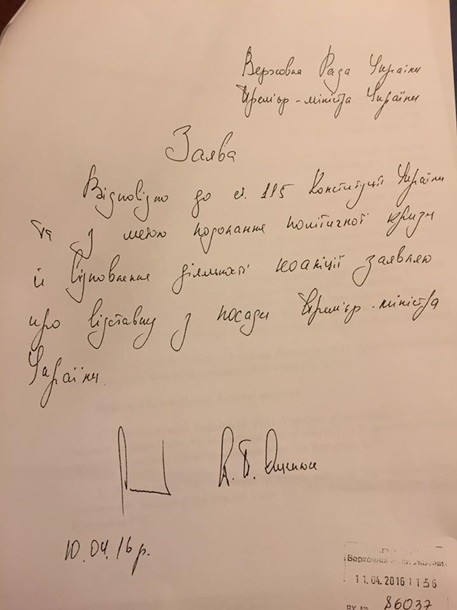 Верховна Рада України
Прем'єр-міністра України
Заява
Відповідно до ст. 115 Конституції України
та з метою подолання політичної кризи
й відновлення діяльності коаліції заявляю
про відставку з посади Прем'єр-міністра
України.
А.П. Яценюк
10.04.16 р.
11.04.2016 11 56
86037